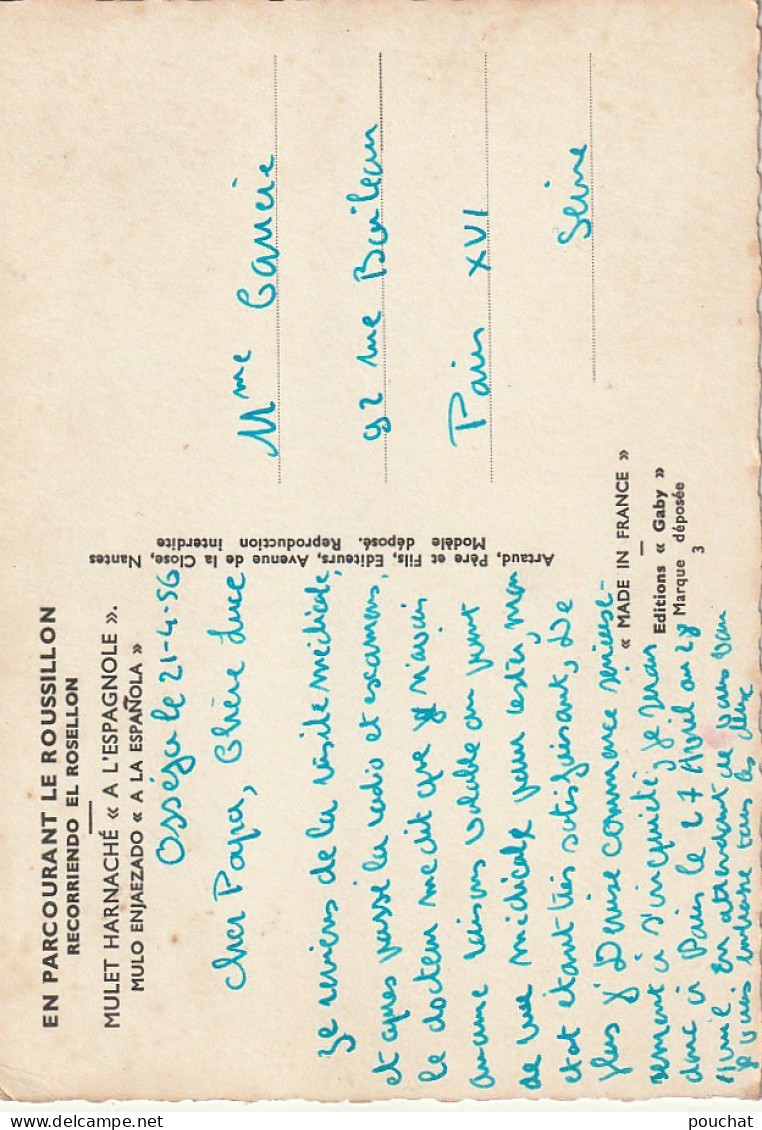 EN PARCOURANT LE ROUSSILLON
RECORRIENDO EL ROSELLON
MULET HARNACHÉ « A L'ESPAGNOLE ».
MULO ENJAEZADO « A LA ESPAÑOLA »
Osséja le 21-4-56
Cher Papa, Chère Luce
Je reviens de la visite médicale,
et apres passé la radio et examens,
le docteur me dit que je n'avais
aucune raisons valable au point
de vue médicale pour rester, mon
etat étant très satisfaisant, De
plus Denise commence sérieuse-
sement à s'inquiété, je serais
donc à Paris le 27 Avril au 28
Avril En attendant de vous voir
je vous embrasse tous les deux
Artaud, Père et Fils, Editeurs, Avenue de la Close, Nantes
Modèle déposé. Reproduction interdite
Mme
92 rue Boileau
Paris XVI
Seine
« MADE IN FRANCE »
Editions « Gaby »
Marque déposée
3
pouchat
delcampe.net